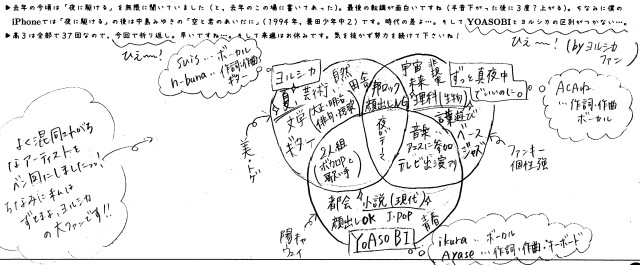 ▶去年の今頃は「夜に駆ける」を無限に聞いていました(と、去年のこの場に書いてあった)。最後の転調が面白いですね(半音下がった後に3度↑上がる)。ちなみに僕の
iPhoneでは「夜に駆ける」の後は中島みゆきの「空と君のあいだに」(1994年、兼田少年中2)です。時代の差よ…。そしてYOASOBIとヨルシカの区別がつかない…。
▶高3は全部で37回なので、今回で折り返し。早いですね…。そして来週はお休みです。気を抜かず努力を続けて下さいね!
ひぇ〜!
ひぇ〜! (byヨルシカファン)
suis … ボーカル
n-buna … 作詞・作曲
ギター
ヨルシカ
夏! 芸術 自然
田舎
文学
ギター
美しい
トゲ
邦ロック
顔出しNG
夜がテーマ
宇宙
未来
理科(生物)
ずっと真夜中
でいいのに。
ACAね
…作詞・作曲
ボーカル
言葉遊び
ベース
ジャズ
ファンキー
個性強
音楽…
テレビ出演
2人組
(ボカロPと
歌い手)
都会 小説(現代)
顔出しOK J-POP 青春
YOASOBI
陽キャ
ikura … ボーカル
Ayase … 作詞・作曲・キーボード
よく混同されがち
なアーティストを
ベン図にしましたっっ!
ちなみに私は
ずとまよ、ヨルシカ
の大ファンです!!